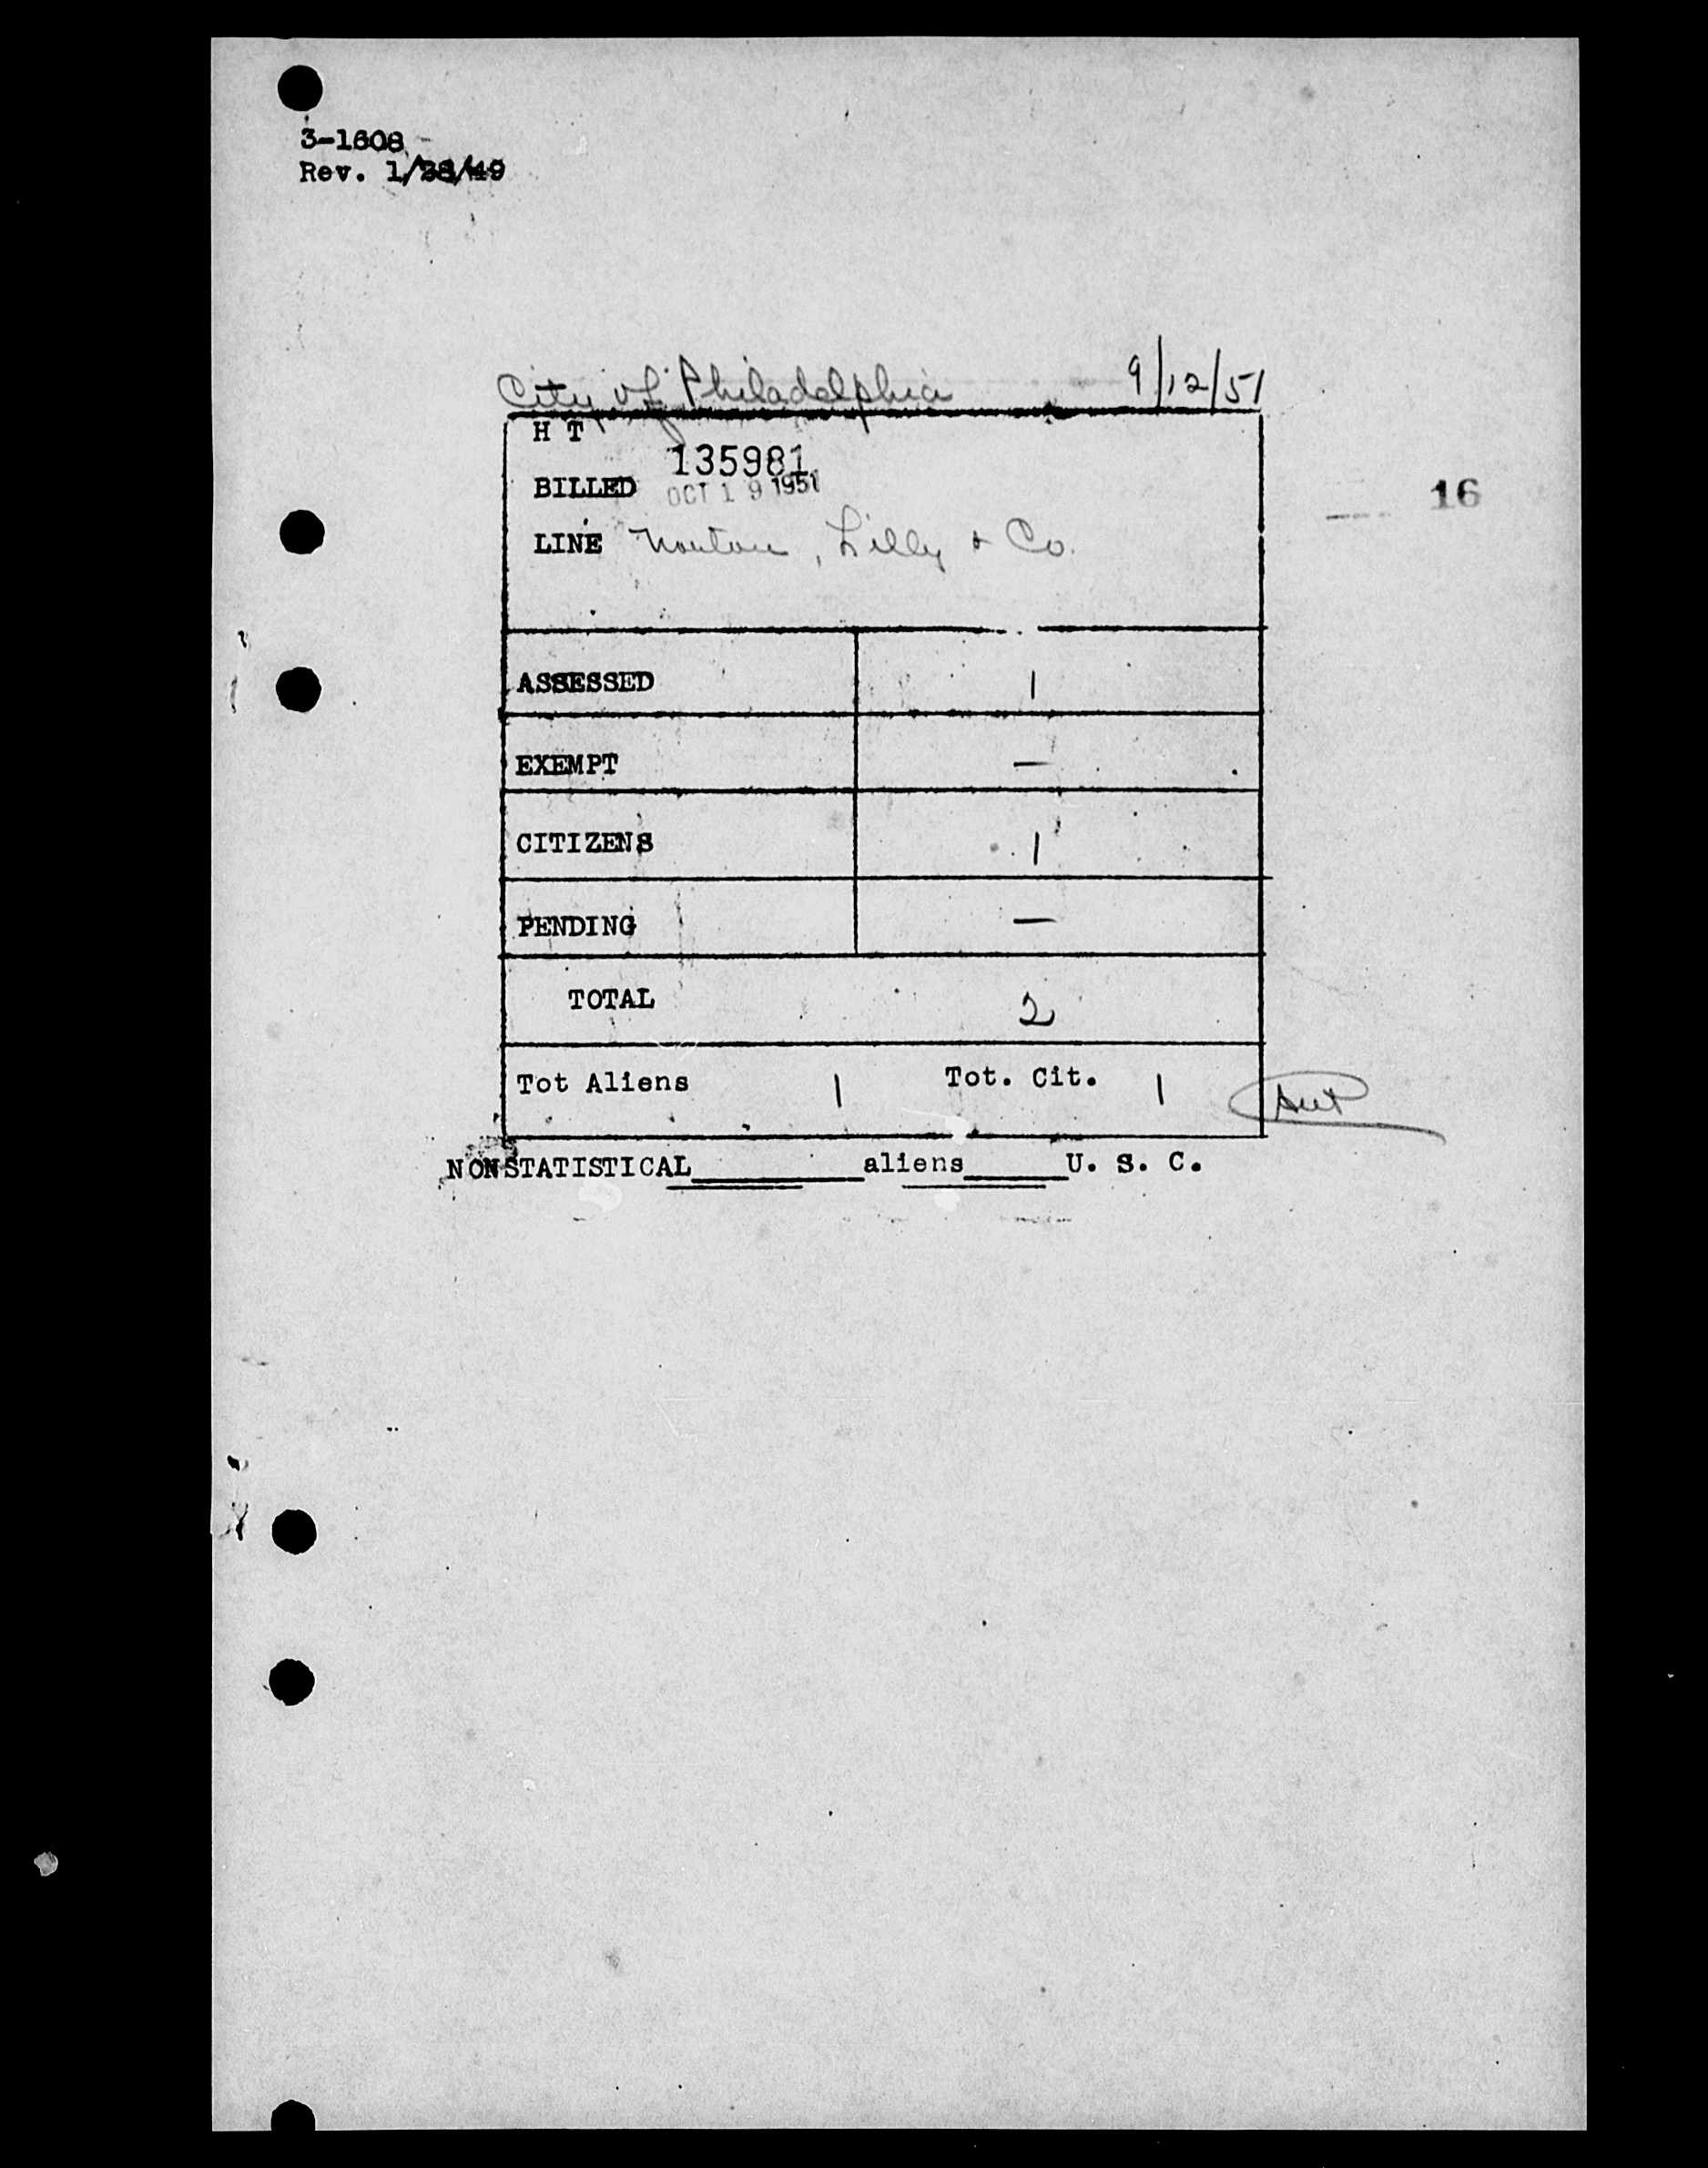 3-1608
Rev. 1/28/49
City of Philadelphia 9/12/51
H T
135981
BILLED OCT 19 1951
16
LINE Norton, Lilly & Co.
ASSESSED 1
EXEMPT —
CITIZENS 1
PENDING —
TOTAL 2
Tot Aliens 1 Tot. Cit. 1
NONSTATISTICAL________aliens_____U. S. C.